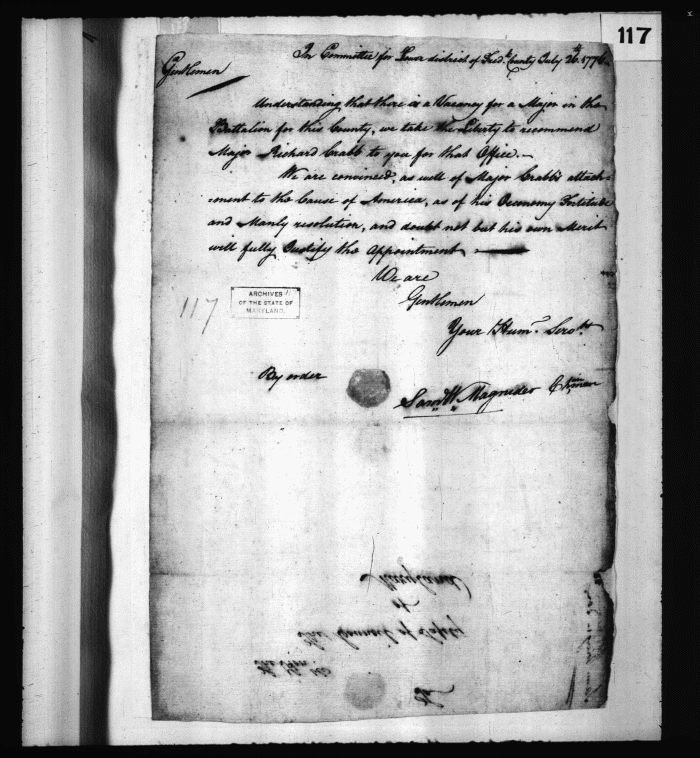 117
In Committee for Lower district of Fredk. County July 26th. 1776.
Gentlemen
Understanding that there is a Vacancy for a Major in the
Battalion for this County, we take the Liberty to recommend
Major Richard Crabb to you for that Office.—
We are convinced, as well of Major Crabb's attach-
ment to the Cause of America, as of his Oeconomy Fortitude
and Manly resolution, and doubt not but his own Merit
will fully Justify the Appointment
We are
Gentlemen
Your Hume. Servts
117
ARCHIVES
OF THE STATE OF
MARYLAND.
By order
Saml W. Magruder Chman
The Honble
The Council of Safety
of
Maryland